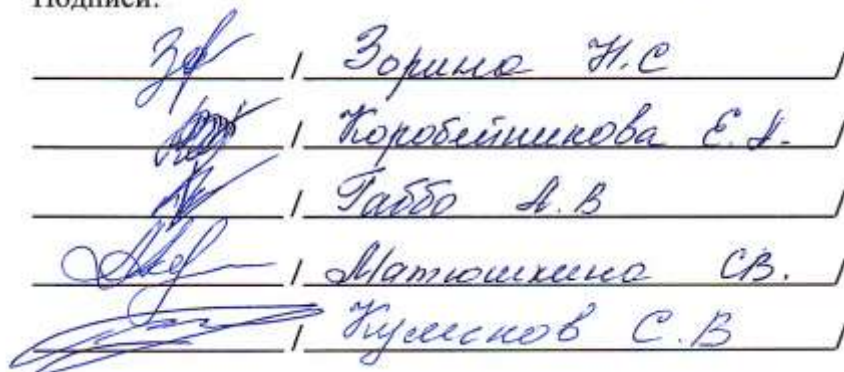 Подписи:
/ Зорина Н.С /
/ Коробейникова Е.А. /
/ Габбо А.В /
/ Матюшкина С.В. /
/ С.В /